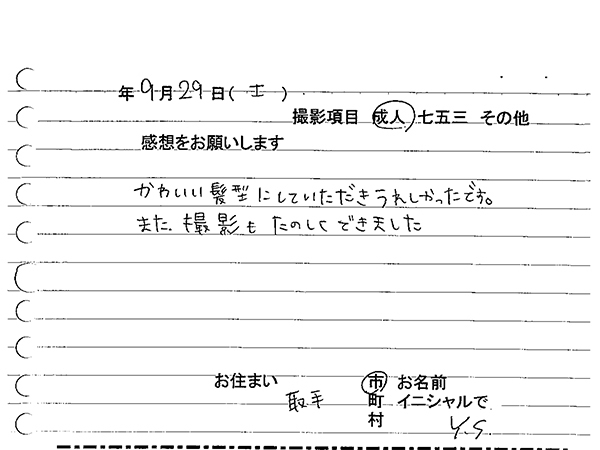 年9月29日(土)
撮影項目 成人 七五三 その他
感想をお願いします
かわいい髪型にしていただきうれしかったです。
また、撮影もたのしくできました
お住まい 取手 市町村
お名前 イニシャルで Y.S